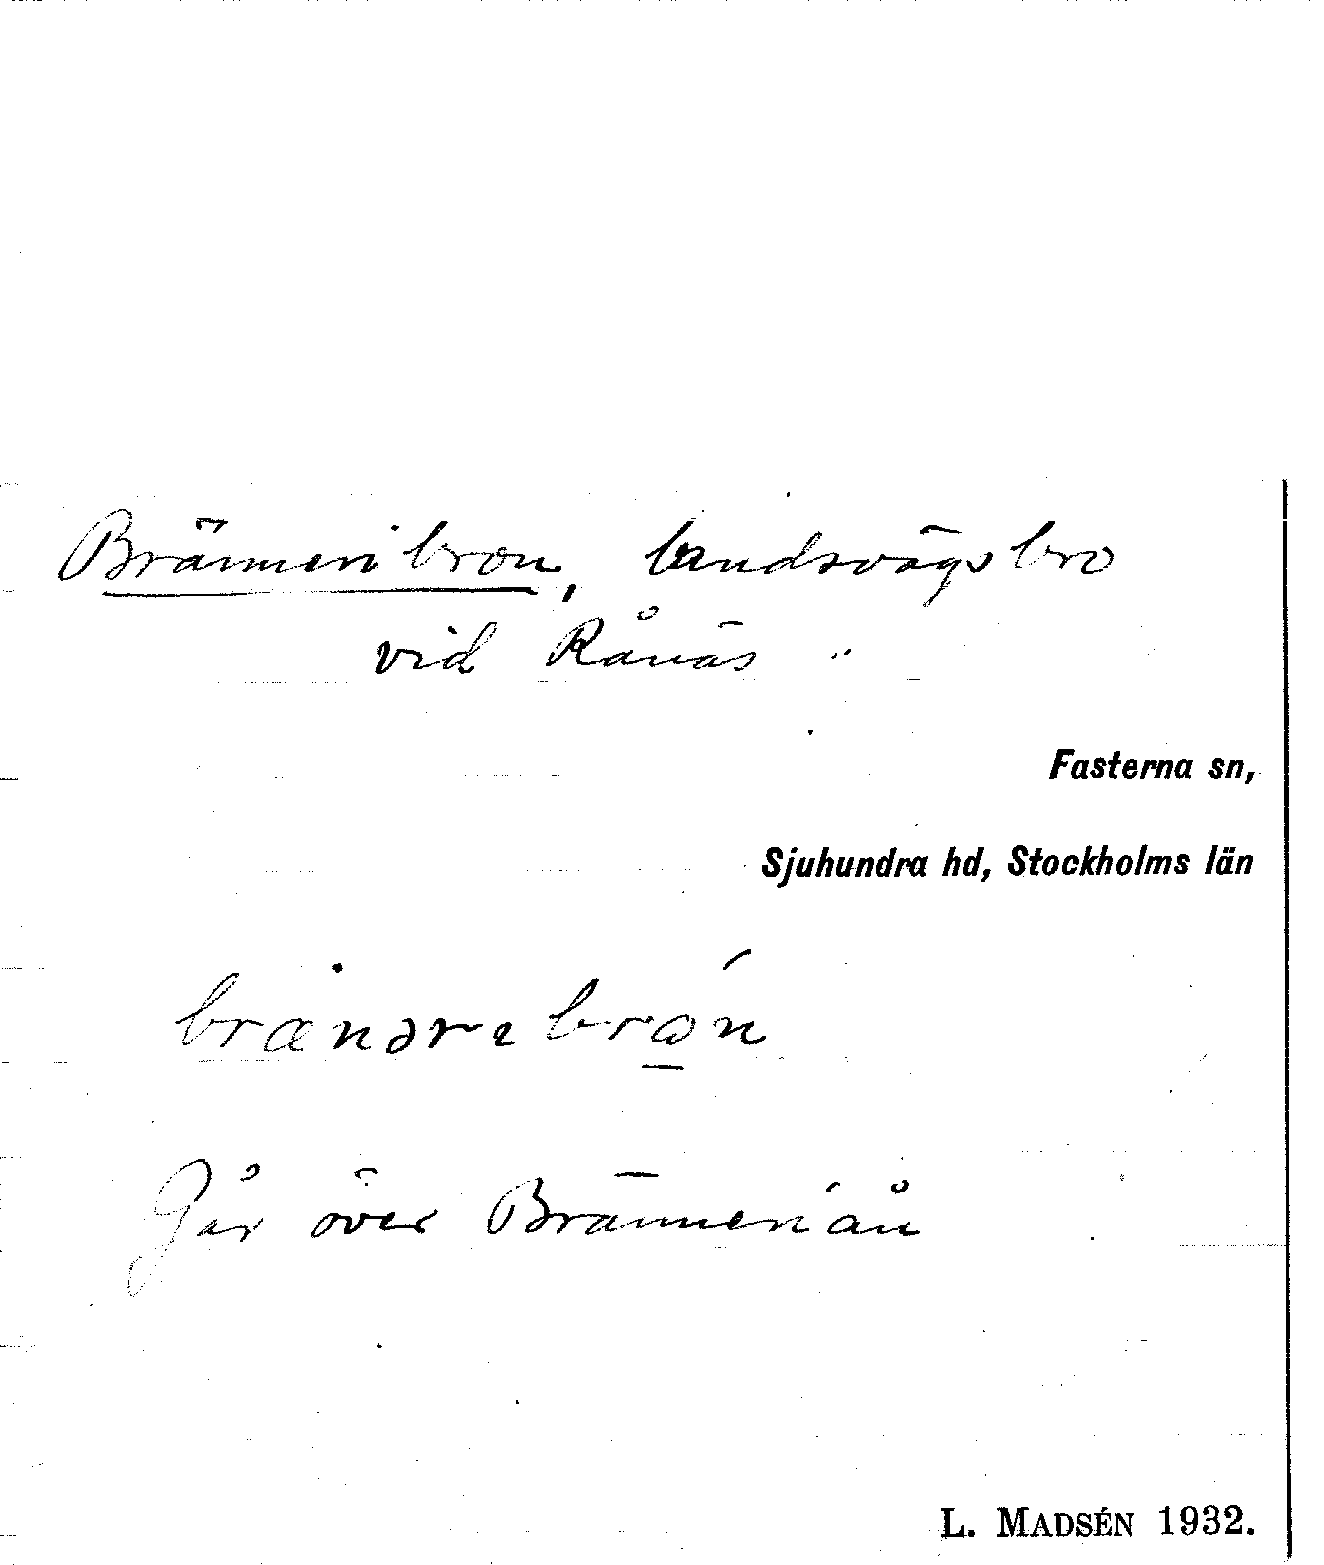 Bränneribron, landsvägsbro
vid Rånäs
Fasterna sn,
Sjuhundra hd, Stockholms län
brænərebrón
Går över Bränneriån
L. MADSÉN 1932.